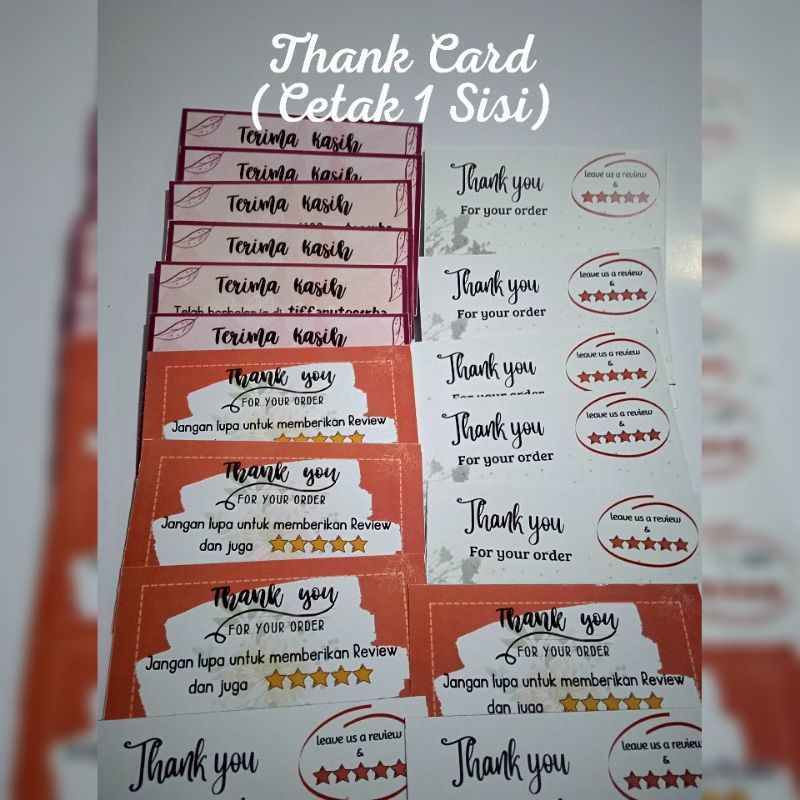 Thank Card
(Cetak 1 Sisi)
Terima Kasih
Terima Kasih
Terima Kasih
Terima Kasih
Terima Kasih
Terima Kasih
Thank you
FOR YOUR ORDER
Jangan lupa untuk memberikan Review
Thank you
FOR YOUR ORDER
Jangan lupa untuk memberikan Review
dan juga
Thank you
FOR YOUR ORDER
Jangan lupa untuk memberikan Review
dan juga
Thank you
leave us a review
&
Thank you
For your order
leave us a review
&
Thank you
For your order
leave us a review
&
Thank you
leave us a review
&
Thank you
For your order
leave us a review
&
Thank you
For your order
leave us a review
&
Thank you
FOR YOUR ORDER
Jangan lupa untuk memberikan Review
dan juga
Thank you
leave us a review
&